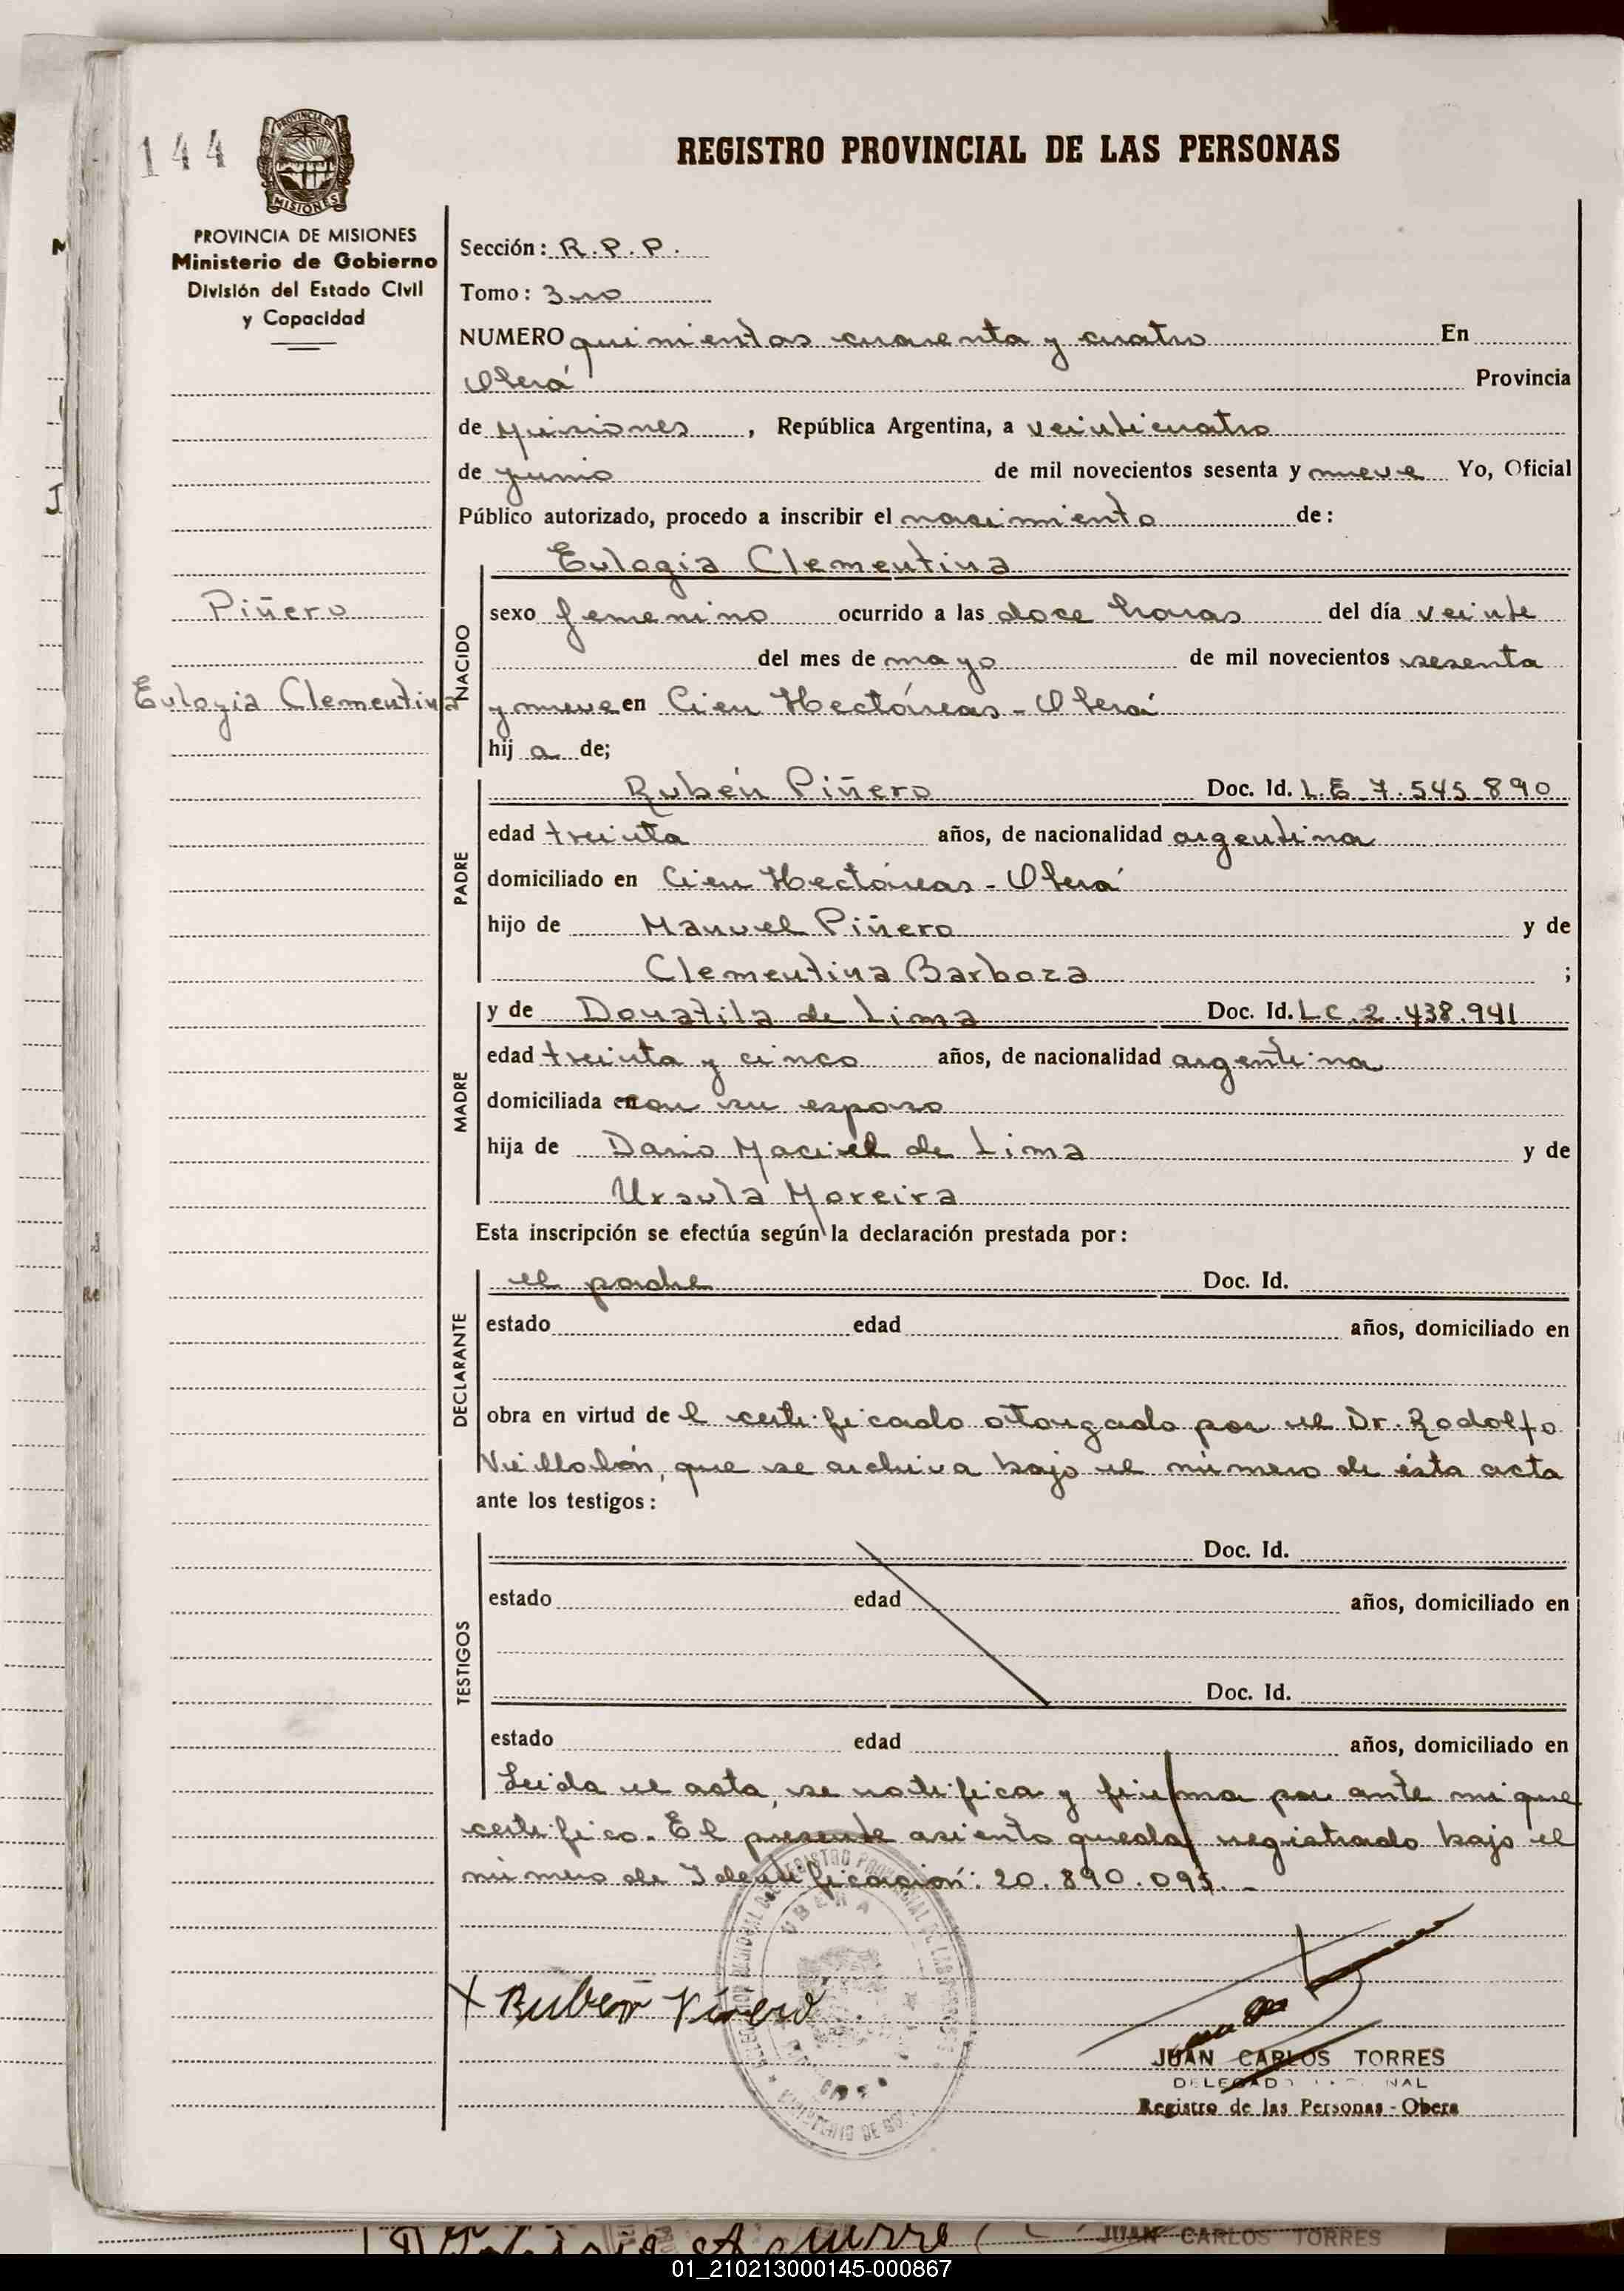 144
PROVINCIA DE
MISIONES
REGISTRO PROVINCIAL DE LAS PERSONAS
PROVINCIA DE MISIONES
Ministerio de Gobierno
División del Estado Civil
y Capacidad
Sección: R.P.P.
Tomo: 3ro
NUMERO quinientos cuarenta y cuatro En
Oberá Provincia
de Misiones, República Argentina, a veinticuatro
de junio de mil novecientos sesenta y nueve Yo, Oficial
Público autorizado, procedo a inscribir el nacimiento de:
Piñero
Eulogia Clementina
NACIDO
Eulogia Clementina
sexo femenino ocurrido a las doce horas del día veinte
del mes de mayo de mil novecientos sesenta
y nueve en Cien Hectáreas - Oberá
hij a de;
PADRE
Rubén Piñero Doc. Id. L.E. 7.545.890
edad treinta años, de nacionalidad argentina
domiciliado en Cien Hectáreas - Oberá
hijo de Manuel Piñero y de
Clementina Barboza ;
MADRE
y de Donatila de Lima Doc. Id. L.C. 2.438.941
edad treinta y cinco años, de nacionalidad argentina
domiciliada en con su esposo
hija de Dario Maciel de Lima y de
Ursula Moreira
Esta inscripción se efectúa según la declaración prestada por:
DECLARANTE
el padre Doc. Id.
estado edad años, domiciliado en
obra en virtud de l certificado otorgado por el Dr. Rodolfo
que se archiva bajo el número de ésta acta
ante los testigos:
TESTIGOS
Doc. Id.
estado edad años, domiciliado en
Doc. Id.
estado edad años, domiciliado en
Leida el acta, se notifica y firma por ante mi que
certifico. El presente asiento queda registrado bajo el
número de Identificación: 20.890.095.-
OBERA
X Ruben Piñero
JUAN CARLOS TORRES
DELEGADO
Registro de las Personas - Obera
JUAN CARLOS TORRES
01_210213000145-000867